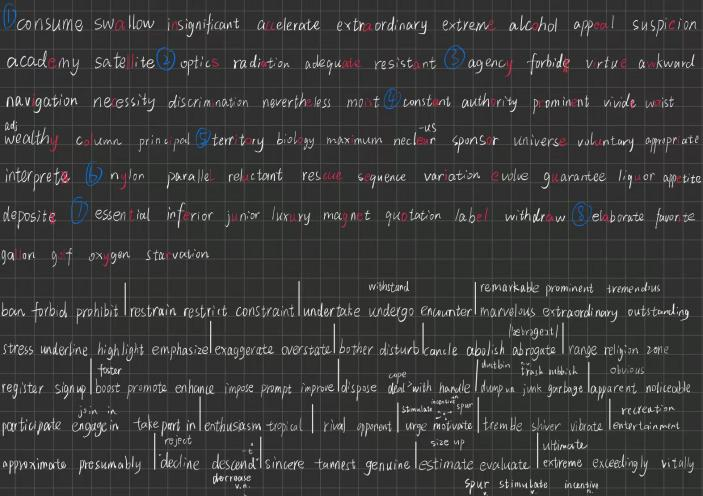 ① consume swallow insignificant accelerate extraordinary extreme alcohol appeal suspicion
academy satellite ② optics radiation adequate resistant ③ agency forbide virtue awkward
navigation necessity discrimination nevertheless moist ④ constant authority prominent vivide waist
adj
wealthy column principal ⑤ territory biology maximum neclear -us sponsor universe voluntary appropriate
interprete ⑥ nylon parallel reluctant rescue sequence variation evolve guarantee liquor appetite
deposite ⑦ essential inferior junior luxury magnet quotation label withdraw ⑧ elaborate favorite
gallon oxygen starvation
withstand remarkable prominent tremendous
ban forbid prohibit | restrain restrict constraint | undertake undergo encounter | marvelous extraordinary outstanding
stress underline highlight emphasize | exaggerate overstate | bother disturb | cancle abolish abrogate | range religion zone
foster cope dustbin trash rubbish obvious
register sign up | boost promote enhance impose prompt improve | dispose deal with handle | dump junk garbage | apparent noticeable
join in stimulate incentive spur recreation
participate engage in take part in | enthusiasm tropical | rival opponent | urge motivate | tremble shiver vibrate | entertainment
reject size up ultimate
approximate presumably | decline descend | sincere genuine | estimate evaluate | extreme exceedingly vitally
decrease v.n. spur v. stimulate v. incentive n.